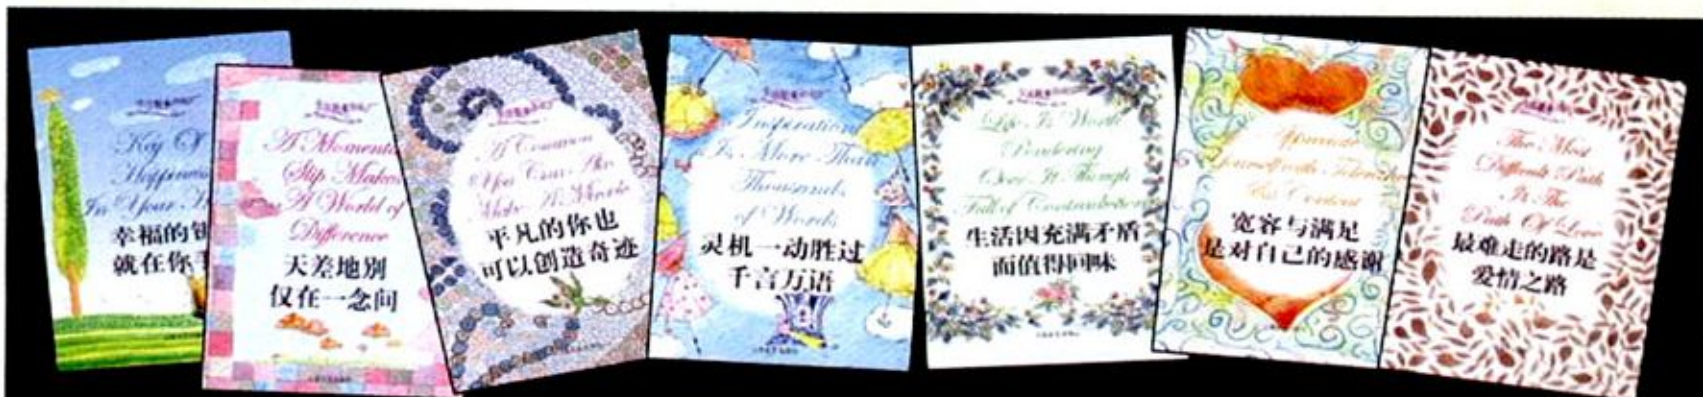 Key Of
Happiness
In Your
幸福的
就在你
A Moment
Slip Makes
A World of
Difference
天差地别
仅在一念间
A Common
You Can Also
Make A Miracle
平凡的你也
可以创造奇迹
Inspiration
Is More Than
Thousands
of Words
灵机一动胜过
千言万语
Life Is Worth
Pondering
Over It Though
Full of Contradictions
生活因充满矛盾
而值得回味
Yourself with
Content
宽容与满足
是对自己的感谢
The Most
Difficult Path
Is The
Path Of Love
最难走的路是
爱情之路